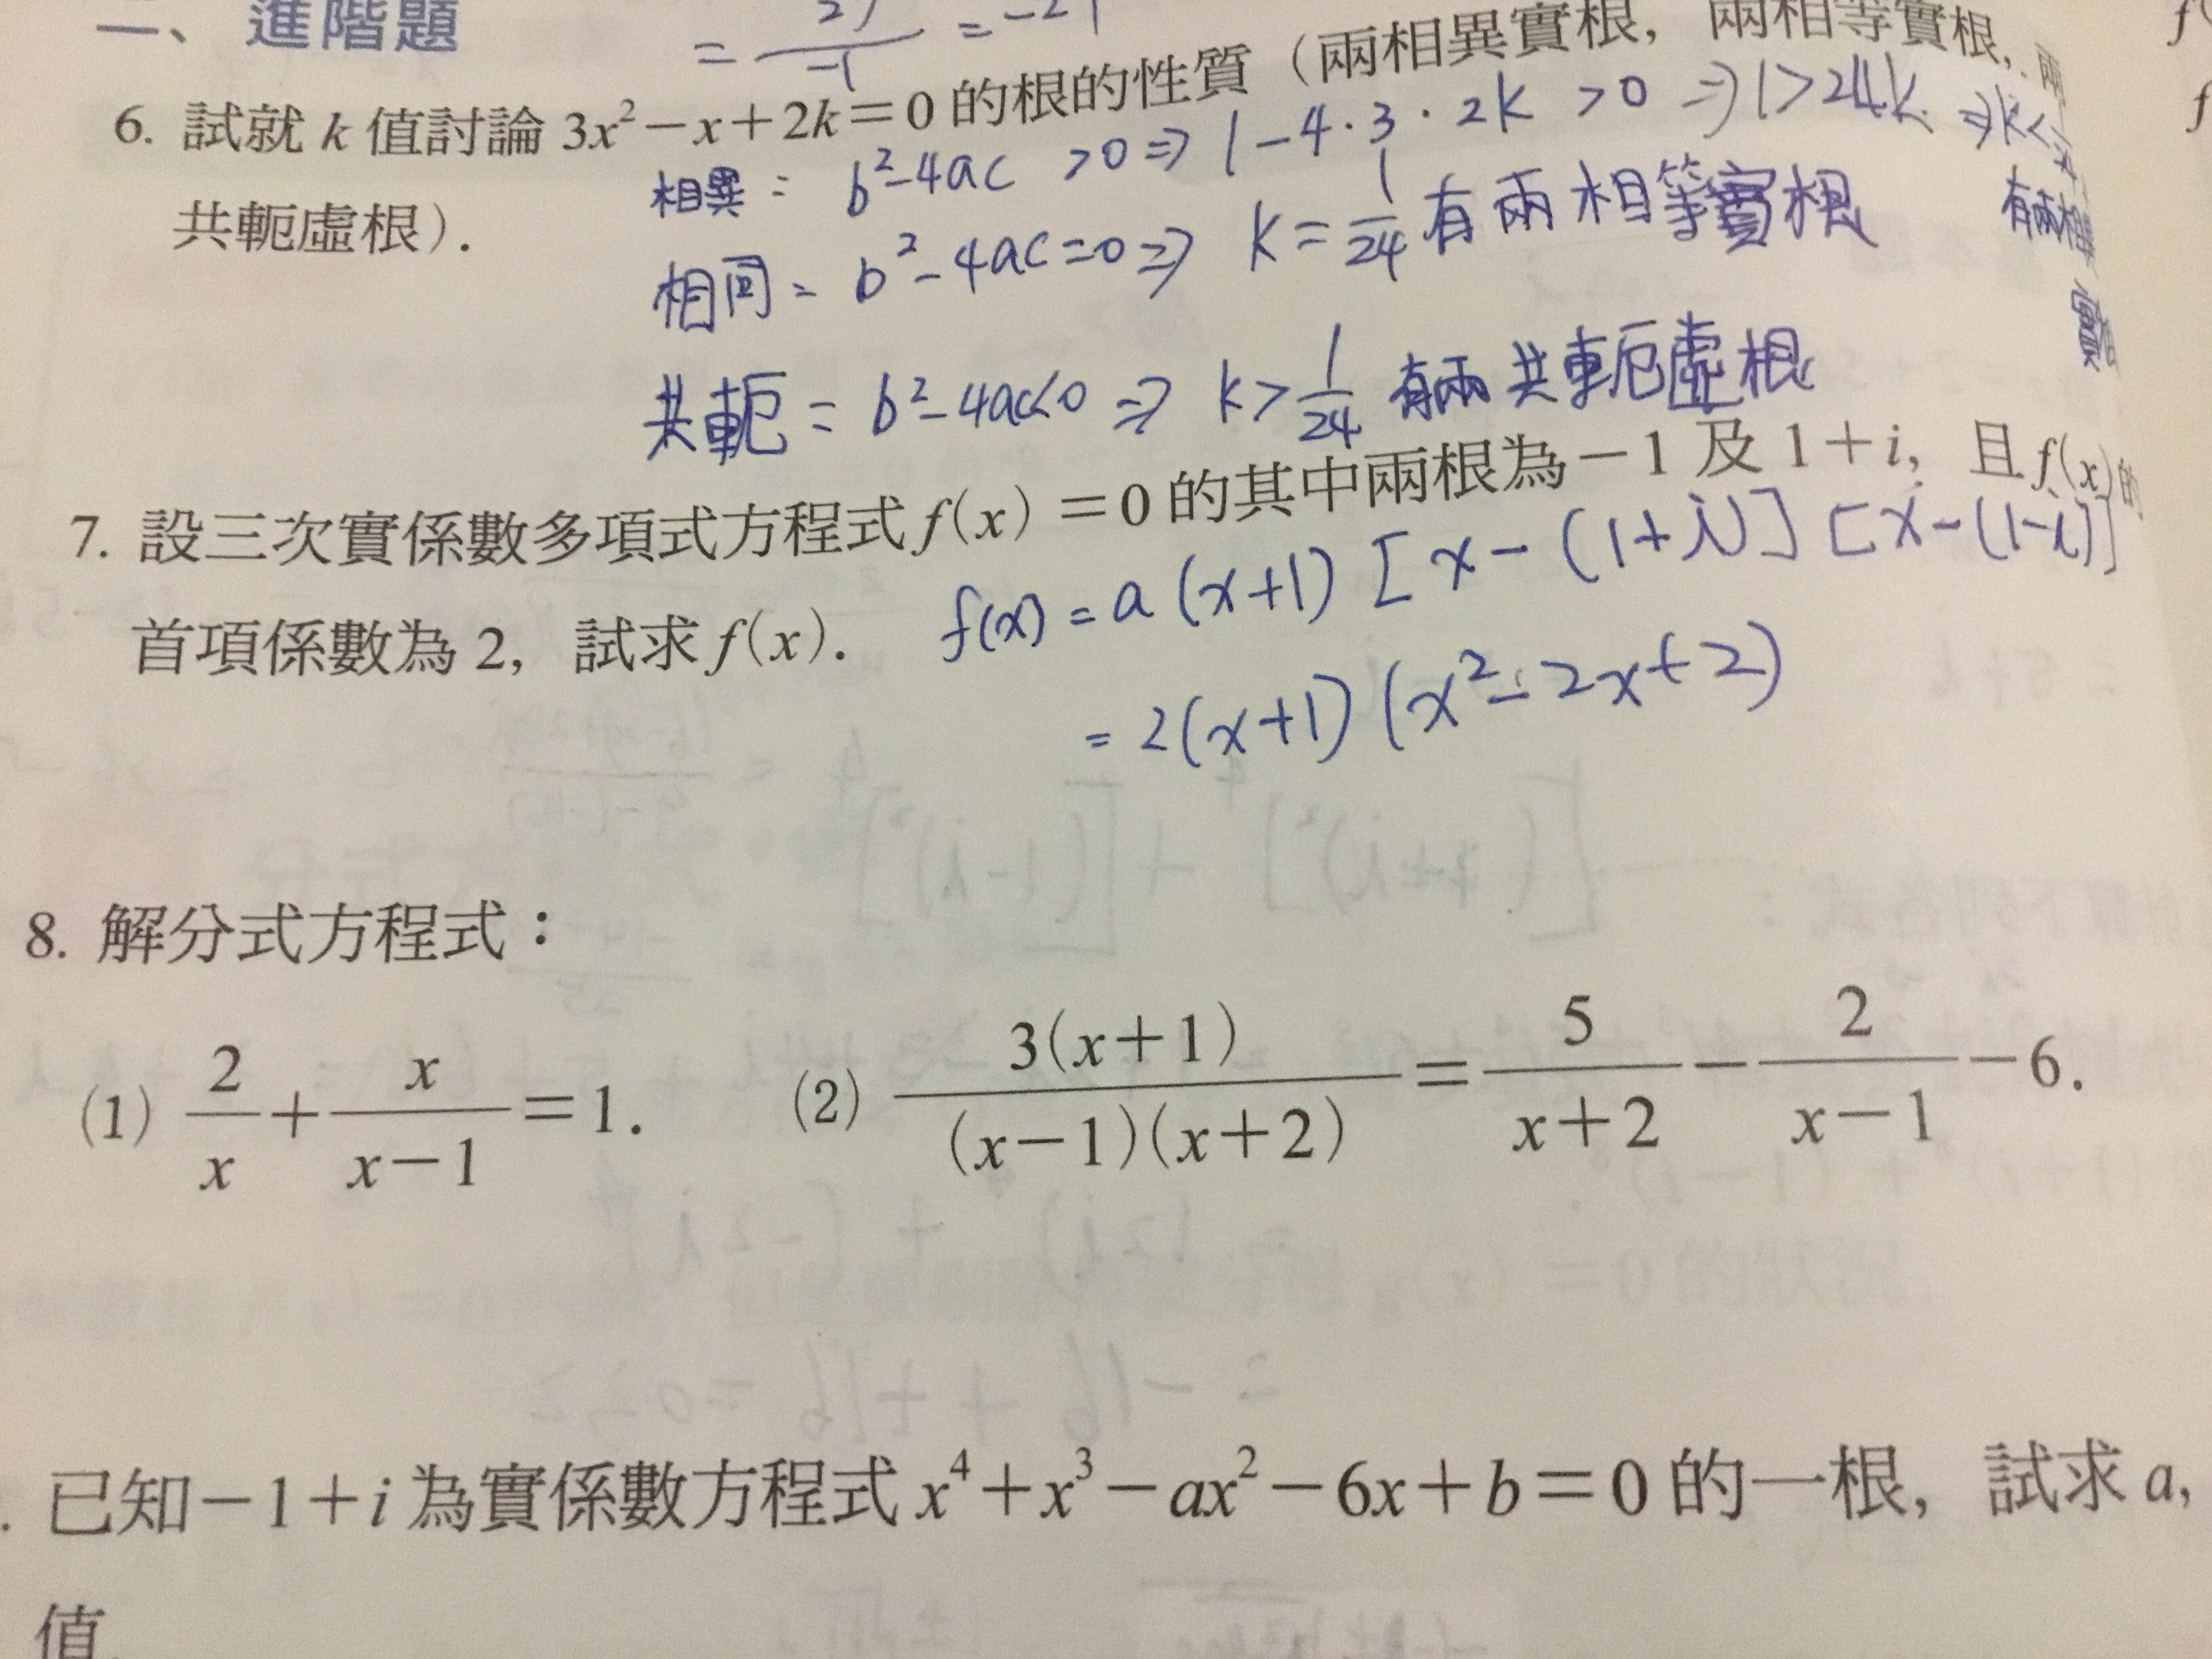 二、進階題
= 27/-1 = -27
6. 試就 k 值討論 3x²－x＋2k＝0 的根的性質（兩相異實根，兩相等實根，兩
共軛虛根）.
相異 = b²-4ac >0 ⇒ 1-4·3·2k >0 ⇒ 1>24k ⇒ k<
有兩相異實根
相同 = b²-4ac=0 ⇒ k=1/24 有兩相等實根
共軛 = b²-4ac<0 ⇒ k>1/24 有兩共軛虛根
7. 設三次實係數多項式方程式 f(x)＝0 的其中兩根為－1 及 1＋i，且 f(x) 的
首項係數為 2，試求 f(x).
f(x) = a(x+1)[x-(1+i)][x-(1-i)]
= 2(x+1)(x²-2x+2)
8. 解分式方程式：
(1) 2/x＋x/(x－1)＝1. (2) 3(x＋1)/((x－1)(x＋2))＝5/(x＋2)－2/(x－1)－6.
. 已知－1＋i 為實係數方程式 x⁴＋x³－ax²－6x＋b＝0 的一根，試求 a,
值.